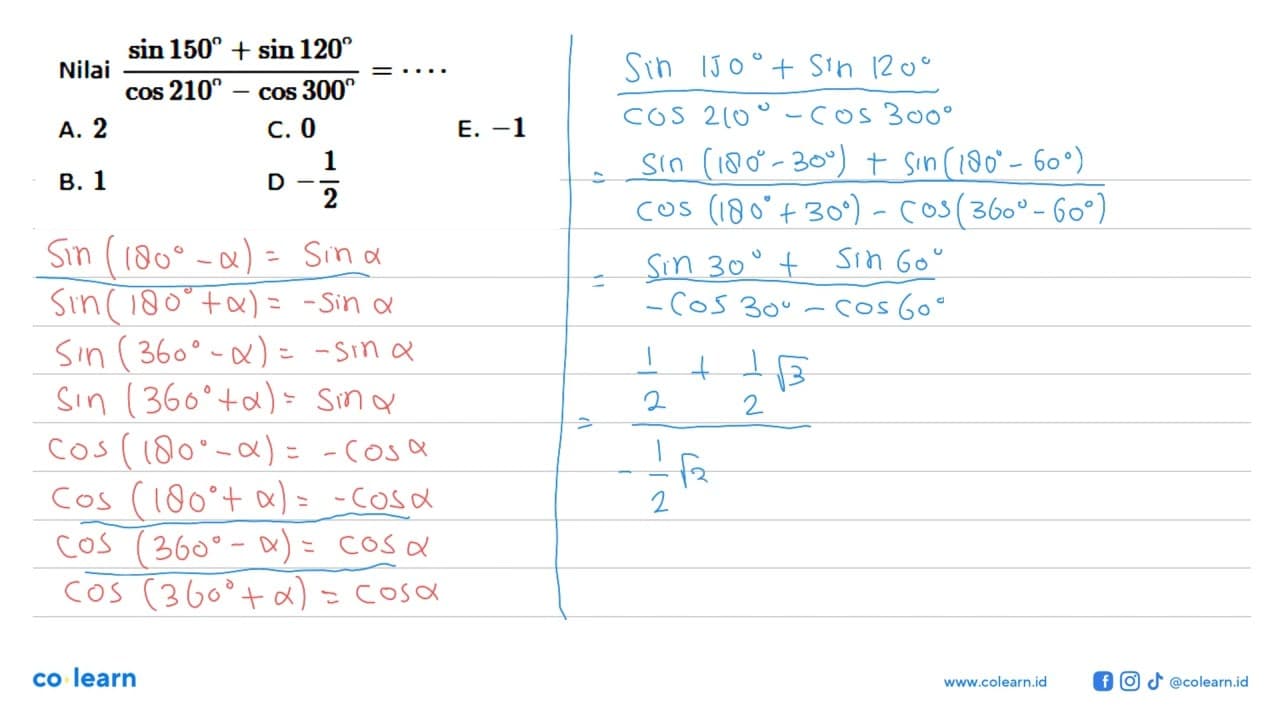 Nilai (sin 150° + sin 120°)/(cos 210° − cos 300°) = ....
A. 2 C. 0 E. −1
B. 1 D −1/2
Sin (180° - α) = Sin α
Sin (180° + α) = -Sin α
Sin (360° - α) = -Sin α
Sin (360° + α) = Sin α
Cos (180° - α) = -Cos α
Cos (180° + α) = -Cos α
Cos (360° - α) = Cos α
Cos (360° + α) = Cos α
Sin 150° + Sin 120°
Cos 210° - Cos 300°
= Sin (180° - 30°) + Sin (180° - 60°)
Cos (180° + 30°) - Cos (360° - 60°)
= Sin 30° + Sin 60°
-Cos 30° - Cos 60°
= 1/2 + 1/2 √3
- 1/2 √3
co learn
www.colearn.id @colearn.id